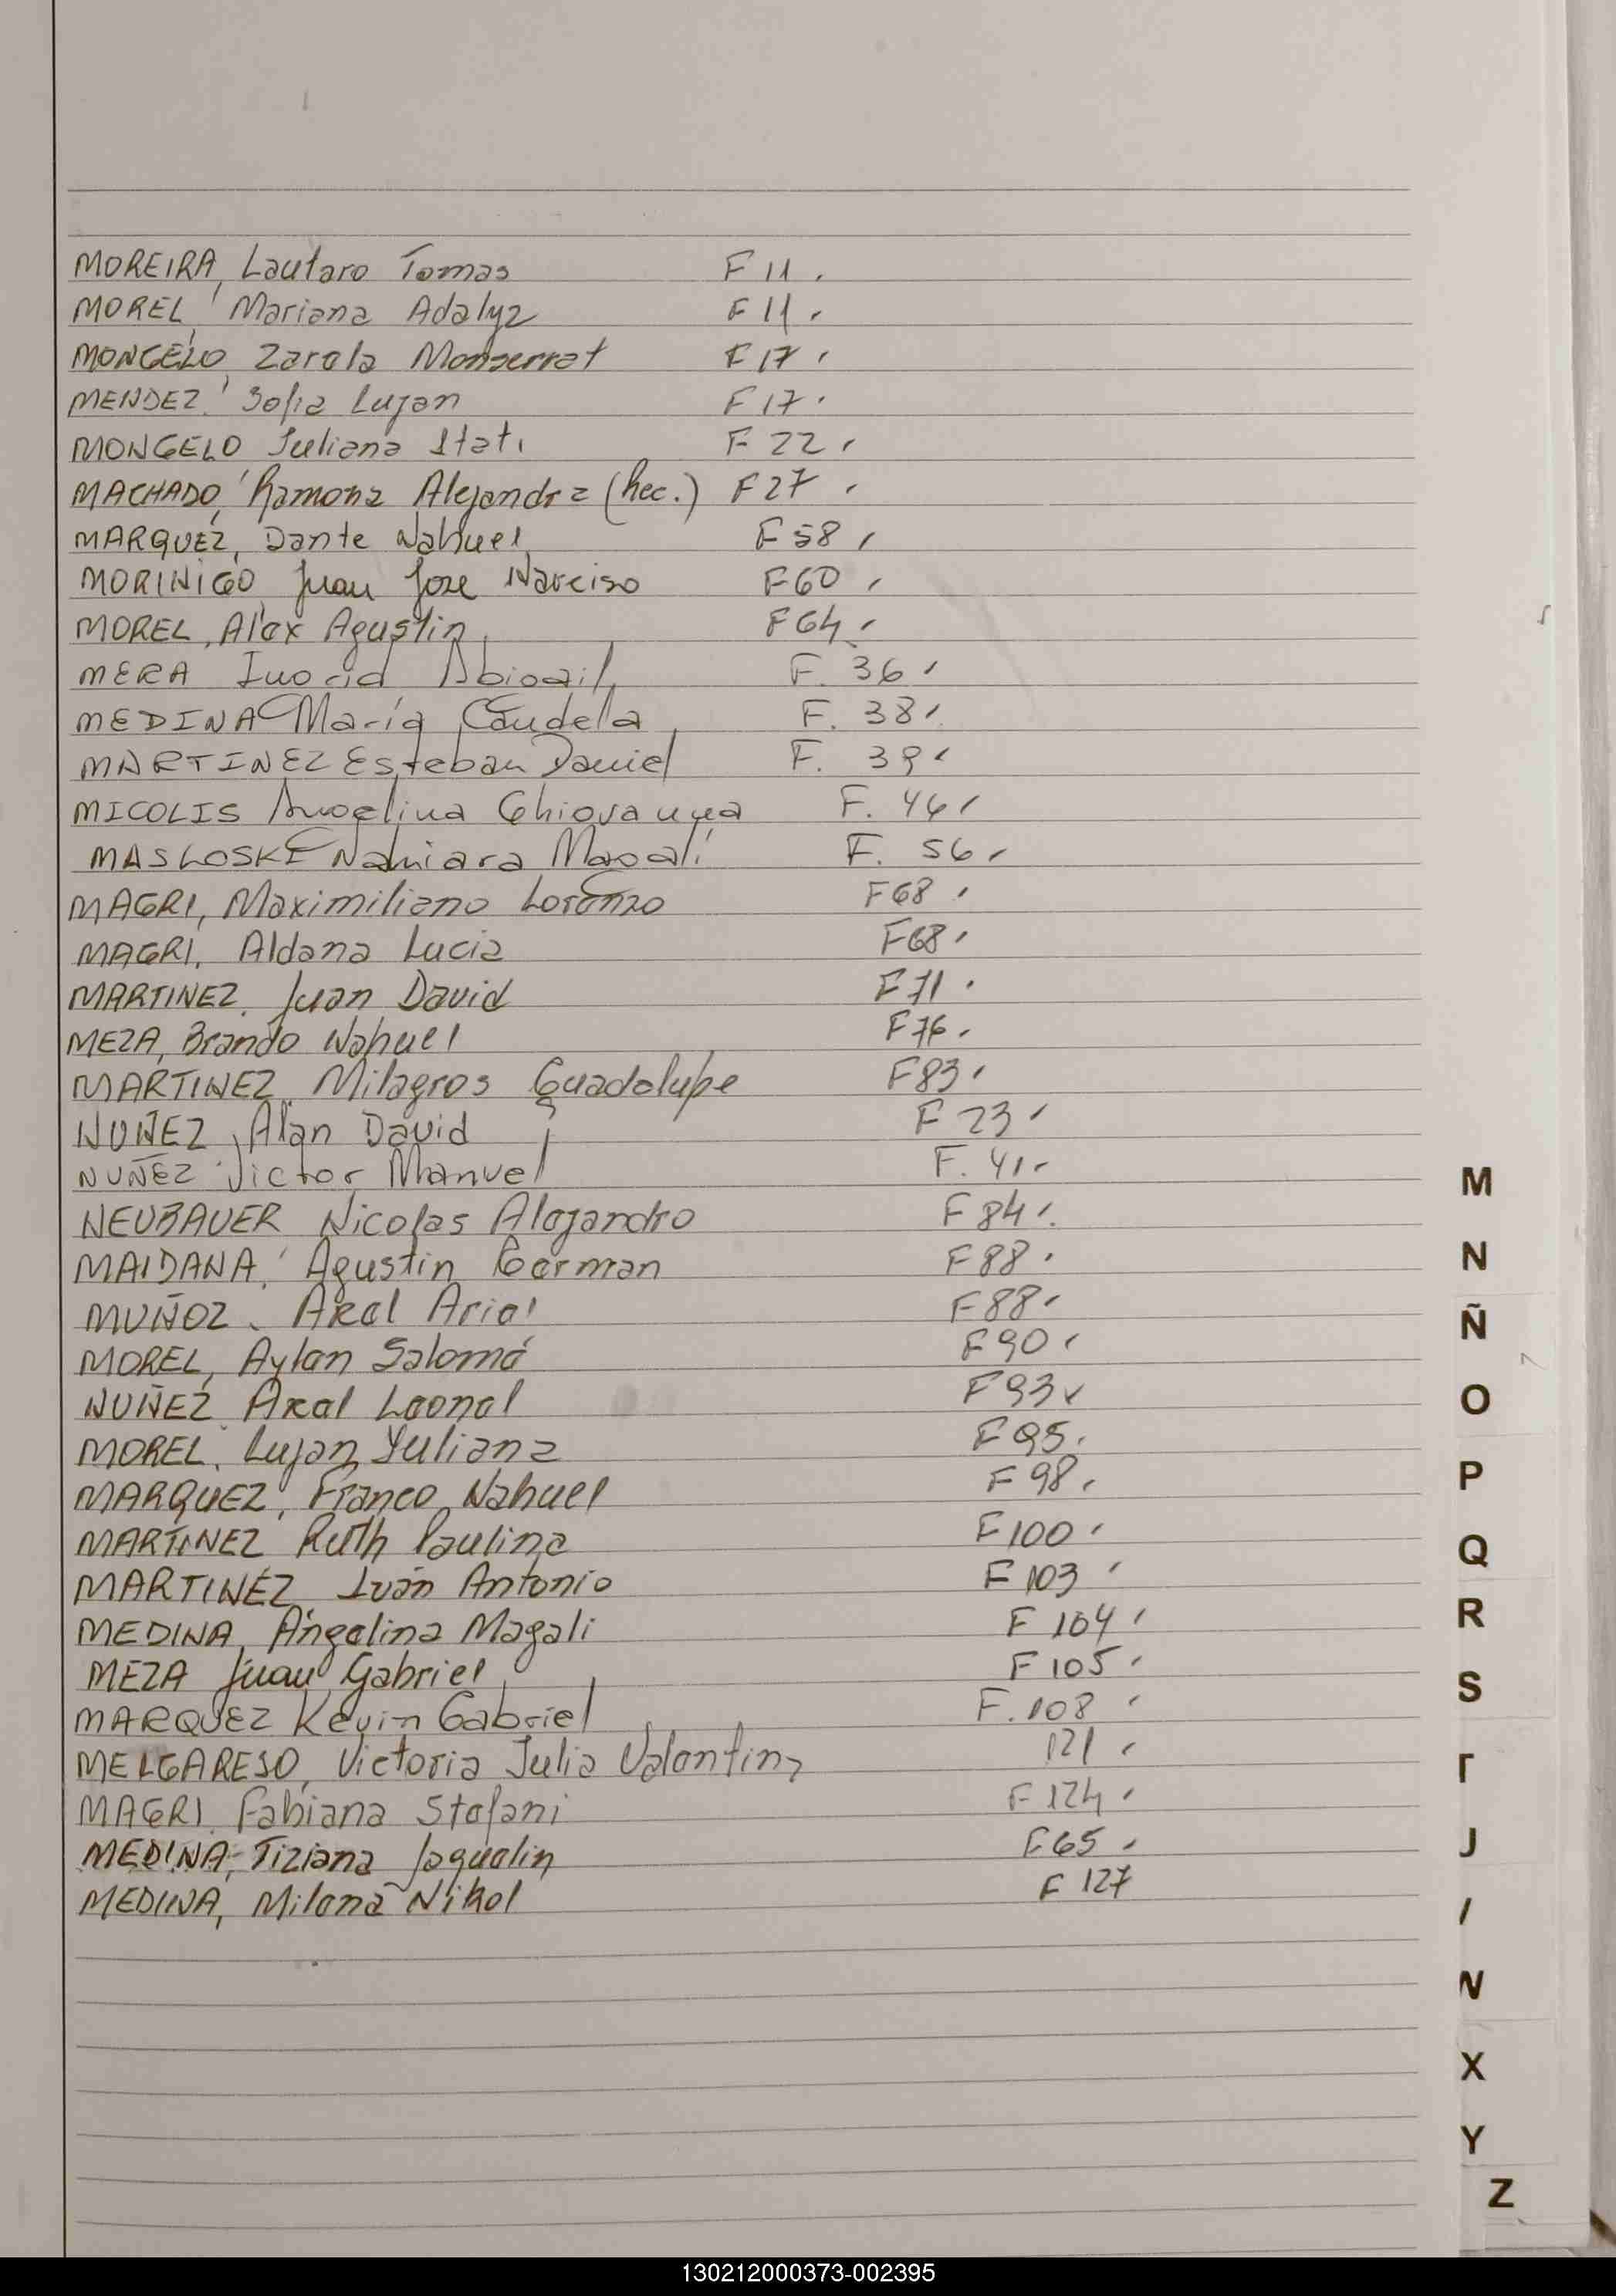 MOREIRA, Lautaro Tomas F 11.
MOREL, Mariana Adalyz F 11.
MONGELO, Zarala Monserrat F 17.
MENDEZ, Sofia Lujan F 17.
MONGELO Juliana Itati F 22.
MACHADO, Ramona Alejandra (Rec.) F 27.
MARQUEZ, Dante Nahuel F 58.
MORINIGO, Juan Jose Narciso F 60.
MOREL, Alex Agustin F 64.
MERA Ingrid Abigail F. 36.
MEDINA María Candela F. 38.
MARTINEZ Esteban Daniel F. 39.
MICOLIS Angelina Ghiovanna F. 46.
MASLOSKI Nahiara Magalí F. 56.
MAGRI, Maximiliano Lorenzo F 68.
MAGRI, Aldana Lucia F 68.
MARTINEZ, Juan David F 71.
MEZA, Brando Nahuel F 76.
MARTINEZ, Milagros Guadalupe F 83.
NUÑEZ, Alan David F 23.
NUÑEZ Victor Manuel F. 41.
NEUBAUER Nicolas Alejandro F 84.
MAIDANA, Agustin German F 88.
MUÑOZ, Axel Ariel F 88.
MOREL, Aylan Salomé F 90.
NUÑEZ, Axel Leonel F 93.
MOREL, Lujan Yuliana F 95.
MARQUEZ, Franco Nahuel F 98.
MARTINEZ Ruth Paulina F 100.
MARTINEZ, Iván Antonio F 103.
MEDINA, Angelina Magali F 104.
MEZA Juan Gabriel F 105.
MARQUEZ Kevin Gabriel F. 108.
MELGAREJO, Victoria Julia Valentina 121.
MAGRI, Fabiana Stefani F 124.
MEDINA, Tiziana Jaquelin F 65.
MEDINA, Milena Nikol F 127
M
N
Ñ
O
P
Q
R
S
T
J
N
X
Y
Z
130212000373-002395